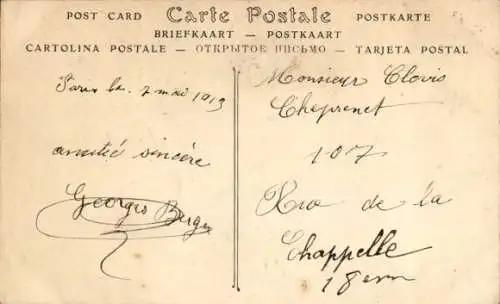 POST CARD Carte Postale POSTKARTE
BRIEFKAART — POSTKAART
CARTOLINA POSTALE — ОТКРЫТОЕ ПИСЬМО — TARJETA POSTAL
Paris le 7 mai 1913
amitié sincère
Georges
Monsieur Clovis
107
Rue de la
Chappelle
18em